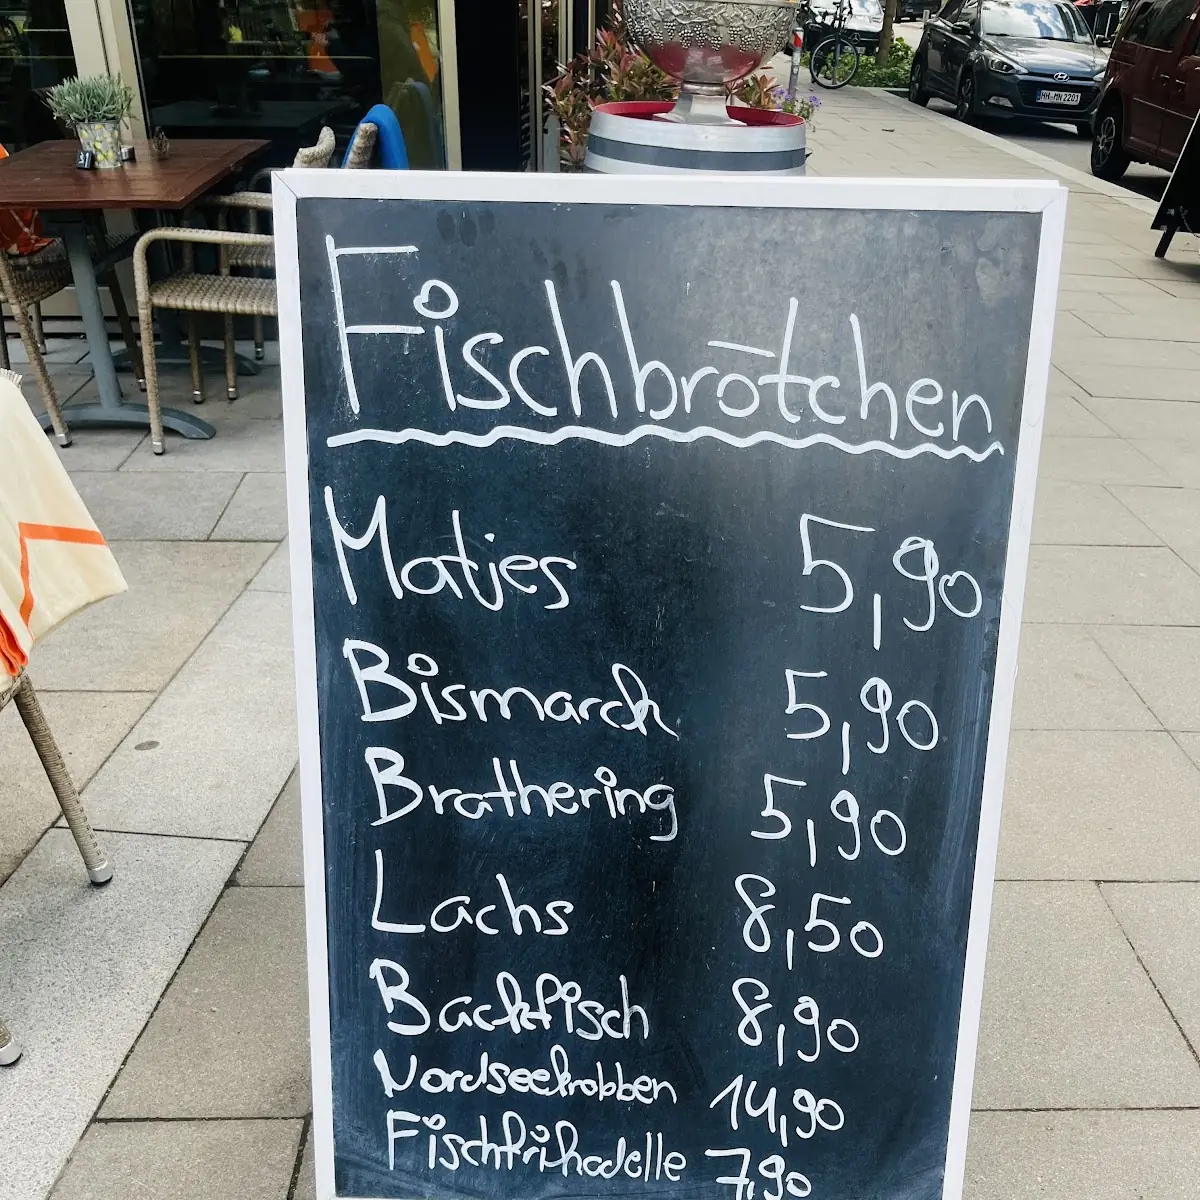 Fischbrötchen
Matjes 5,90
Bismarck 5,90
Brathering 5,90
Lachs 8,50
Backfisch 8,90
Nordseekrabben 14,90
Fischfrikadelle 7,90
HH-MN 2201